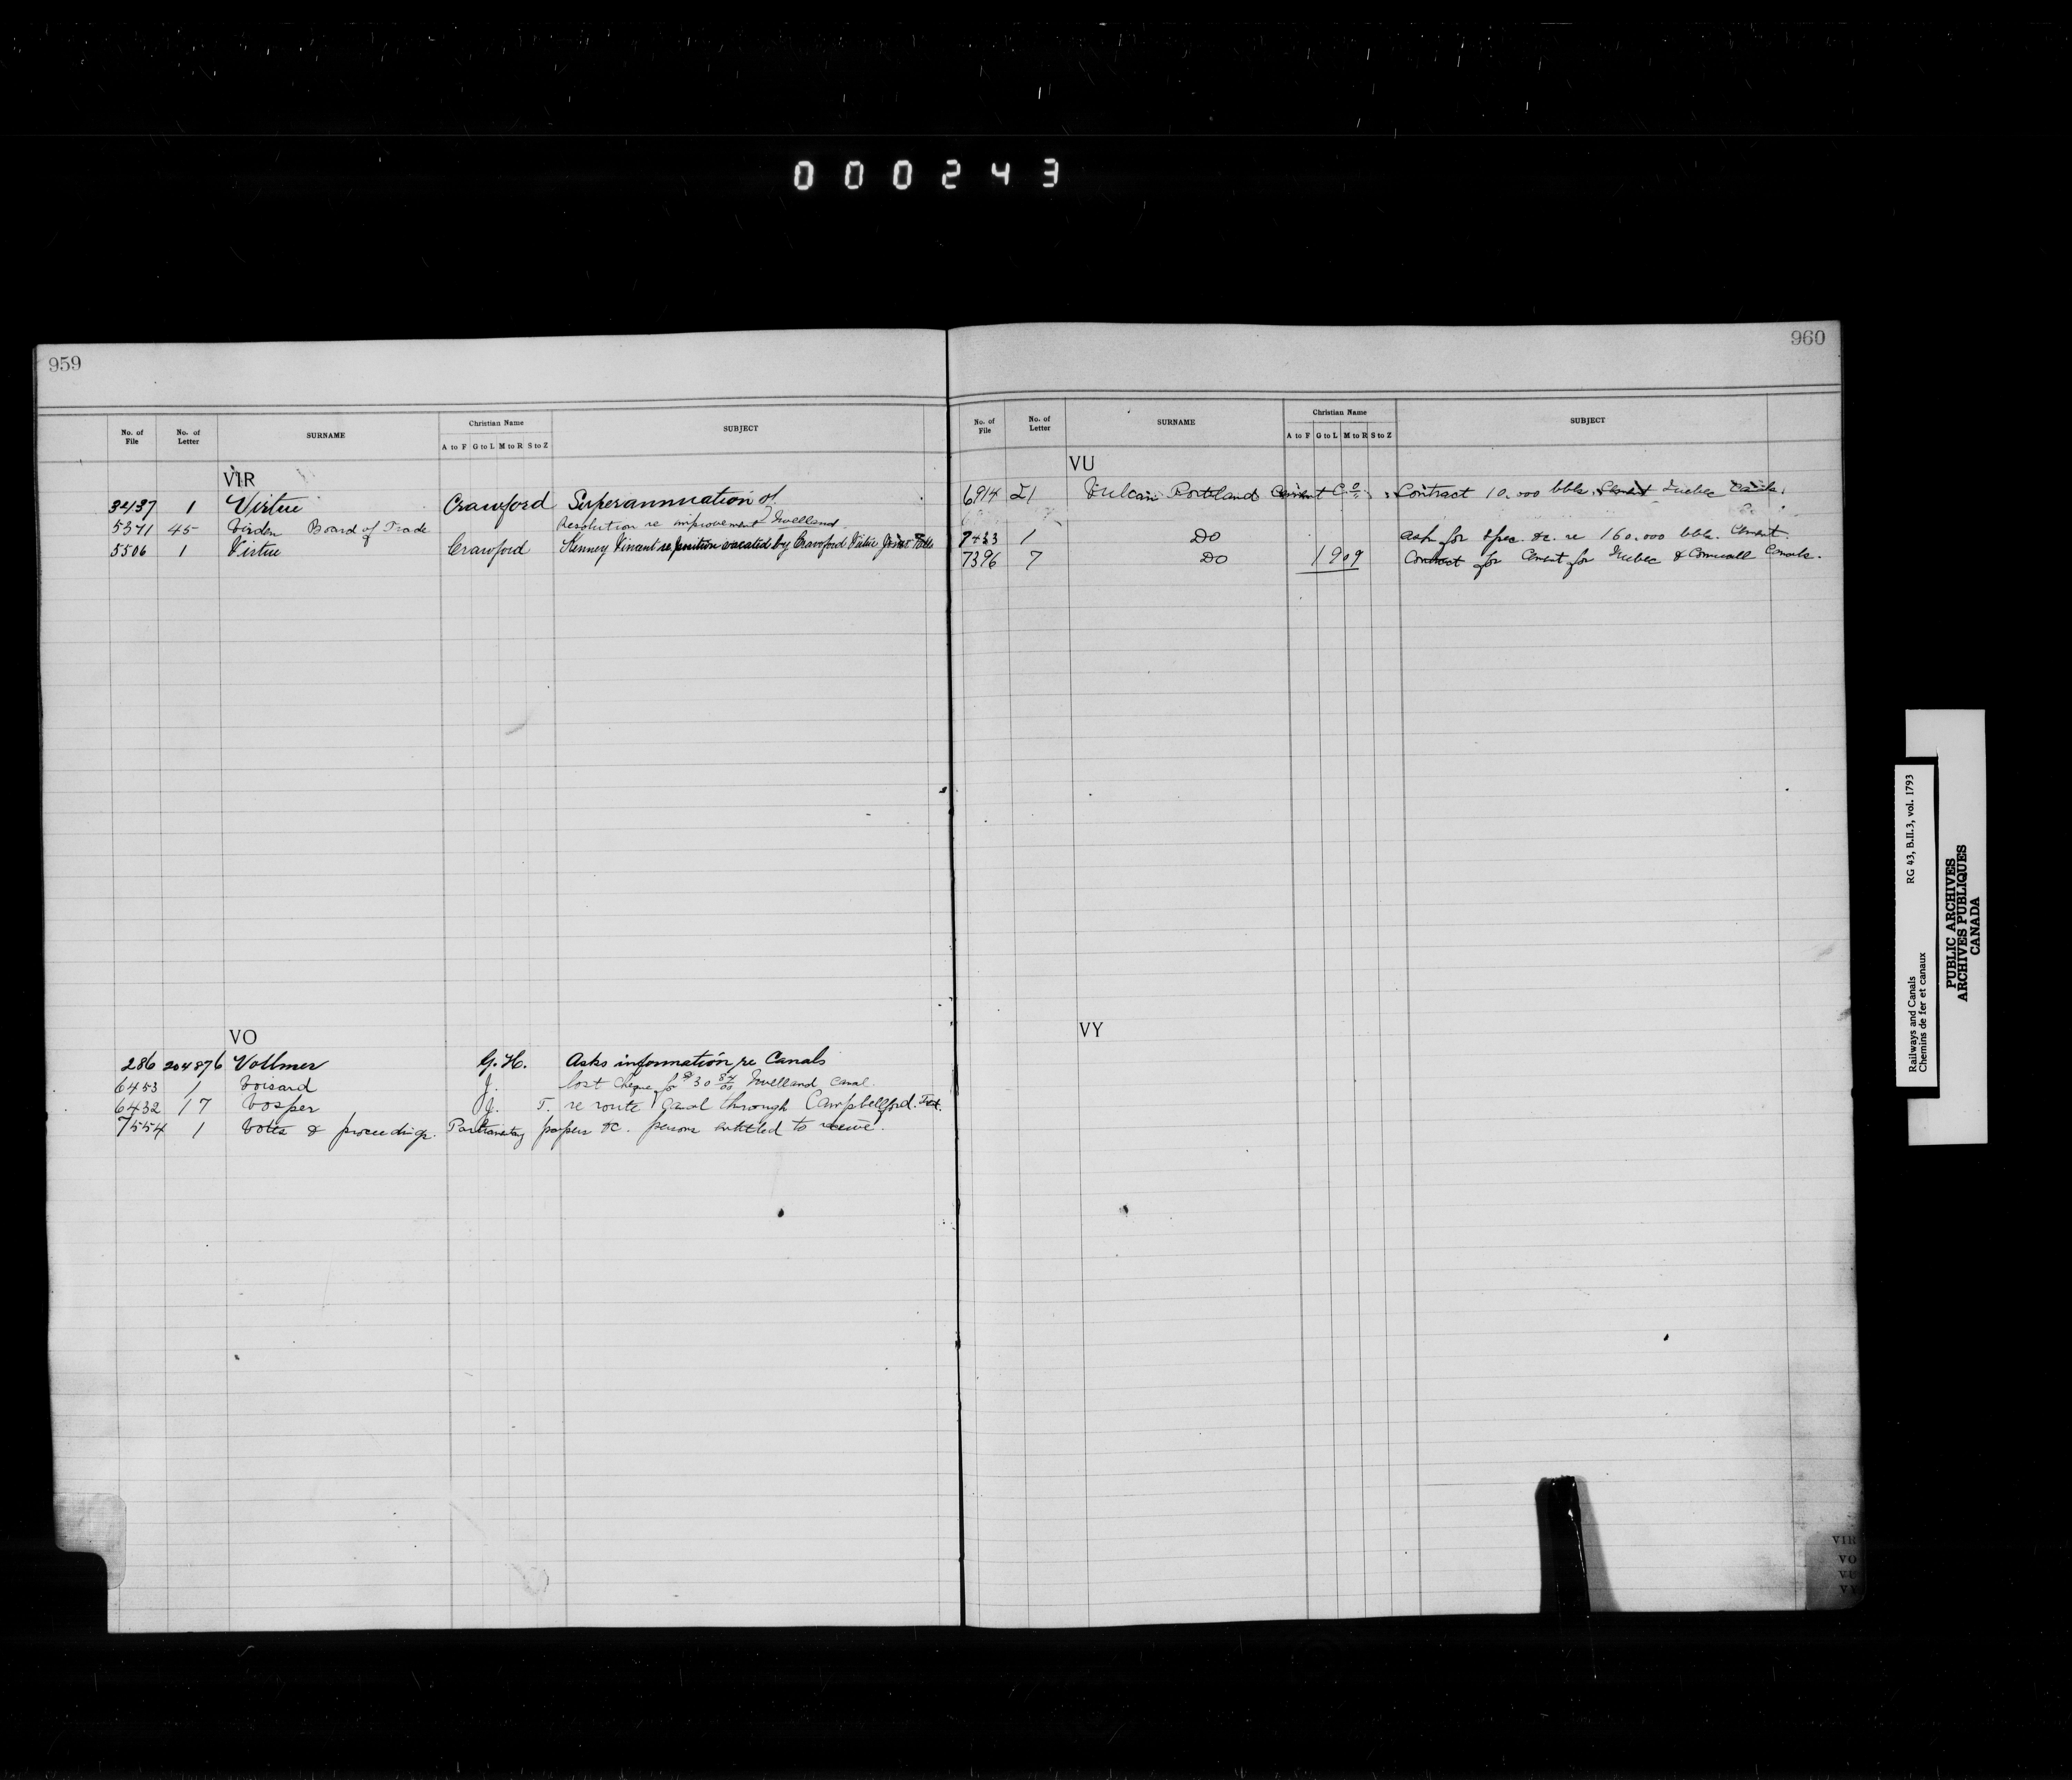 000243
959
No. of File No. of Letter SURNAME Christian Name SUBJECT
A to F G to L M to R S to Z
VIR
3437 1 Virtue Crawford Superannuation of
5371 45 Virden Board of Trade Resolution re improvement Welland
5506 1 Virtue Crawford Kenney Vincent re position vacated by Crawford Virtue
VO
286 204876 Vollmer G. H. Asks information re Canals
6453 1 Voisard J. lost cheque for $30 54/00 Welland Canal.
6432 17 Vosper J. T. re route Canal through Campbellford. Trent.
7554 1 Votes & proceedings. Parliamentary papers &c. persons entitled to receive.
960
No. of File No. of Letter SURNAME Christian Name SUBJECT
A to F G to L M to R S to Z
VU
6914 21 Vulcan Portland Cement Co. Contract 10.000 bbls. Cement Quebec Canals.
7433 1 Do ask for spec. &c. re 160.000 bbls. Cement.
7396 7 Do 1909 Contract for Cement for Quebec & Cornwall Canals.
VY
VIR
VO
VU
VY
Railways and Canals RG 43, B.II.3, vol. 1793
Chemins de fer et canaux
PUBLIC ARCHIVES
ARCHIVES PUBLIQUES
CANADA